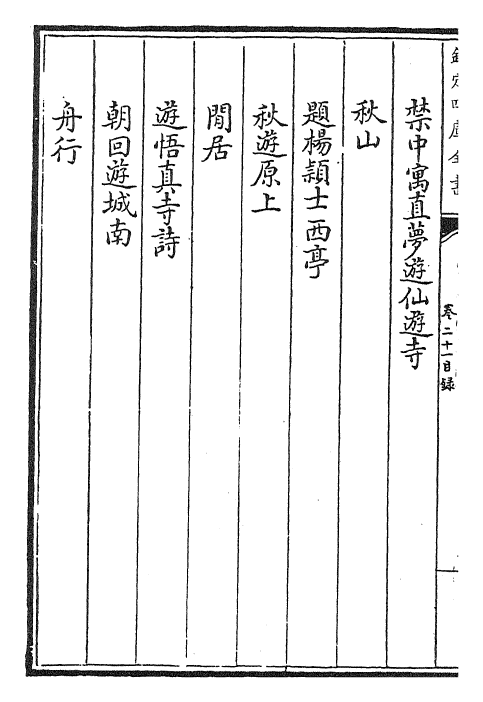 欽定四庫全書
卷二十一目録
禁中寓直夢遊仙遊寺
秋山
題楊頴士西亭
秋遊原上
閒居
遊悟真寺詩
朝回遊城南
舟行